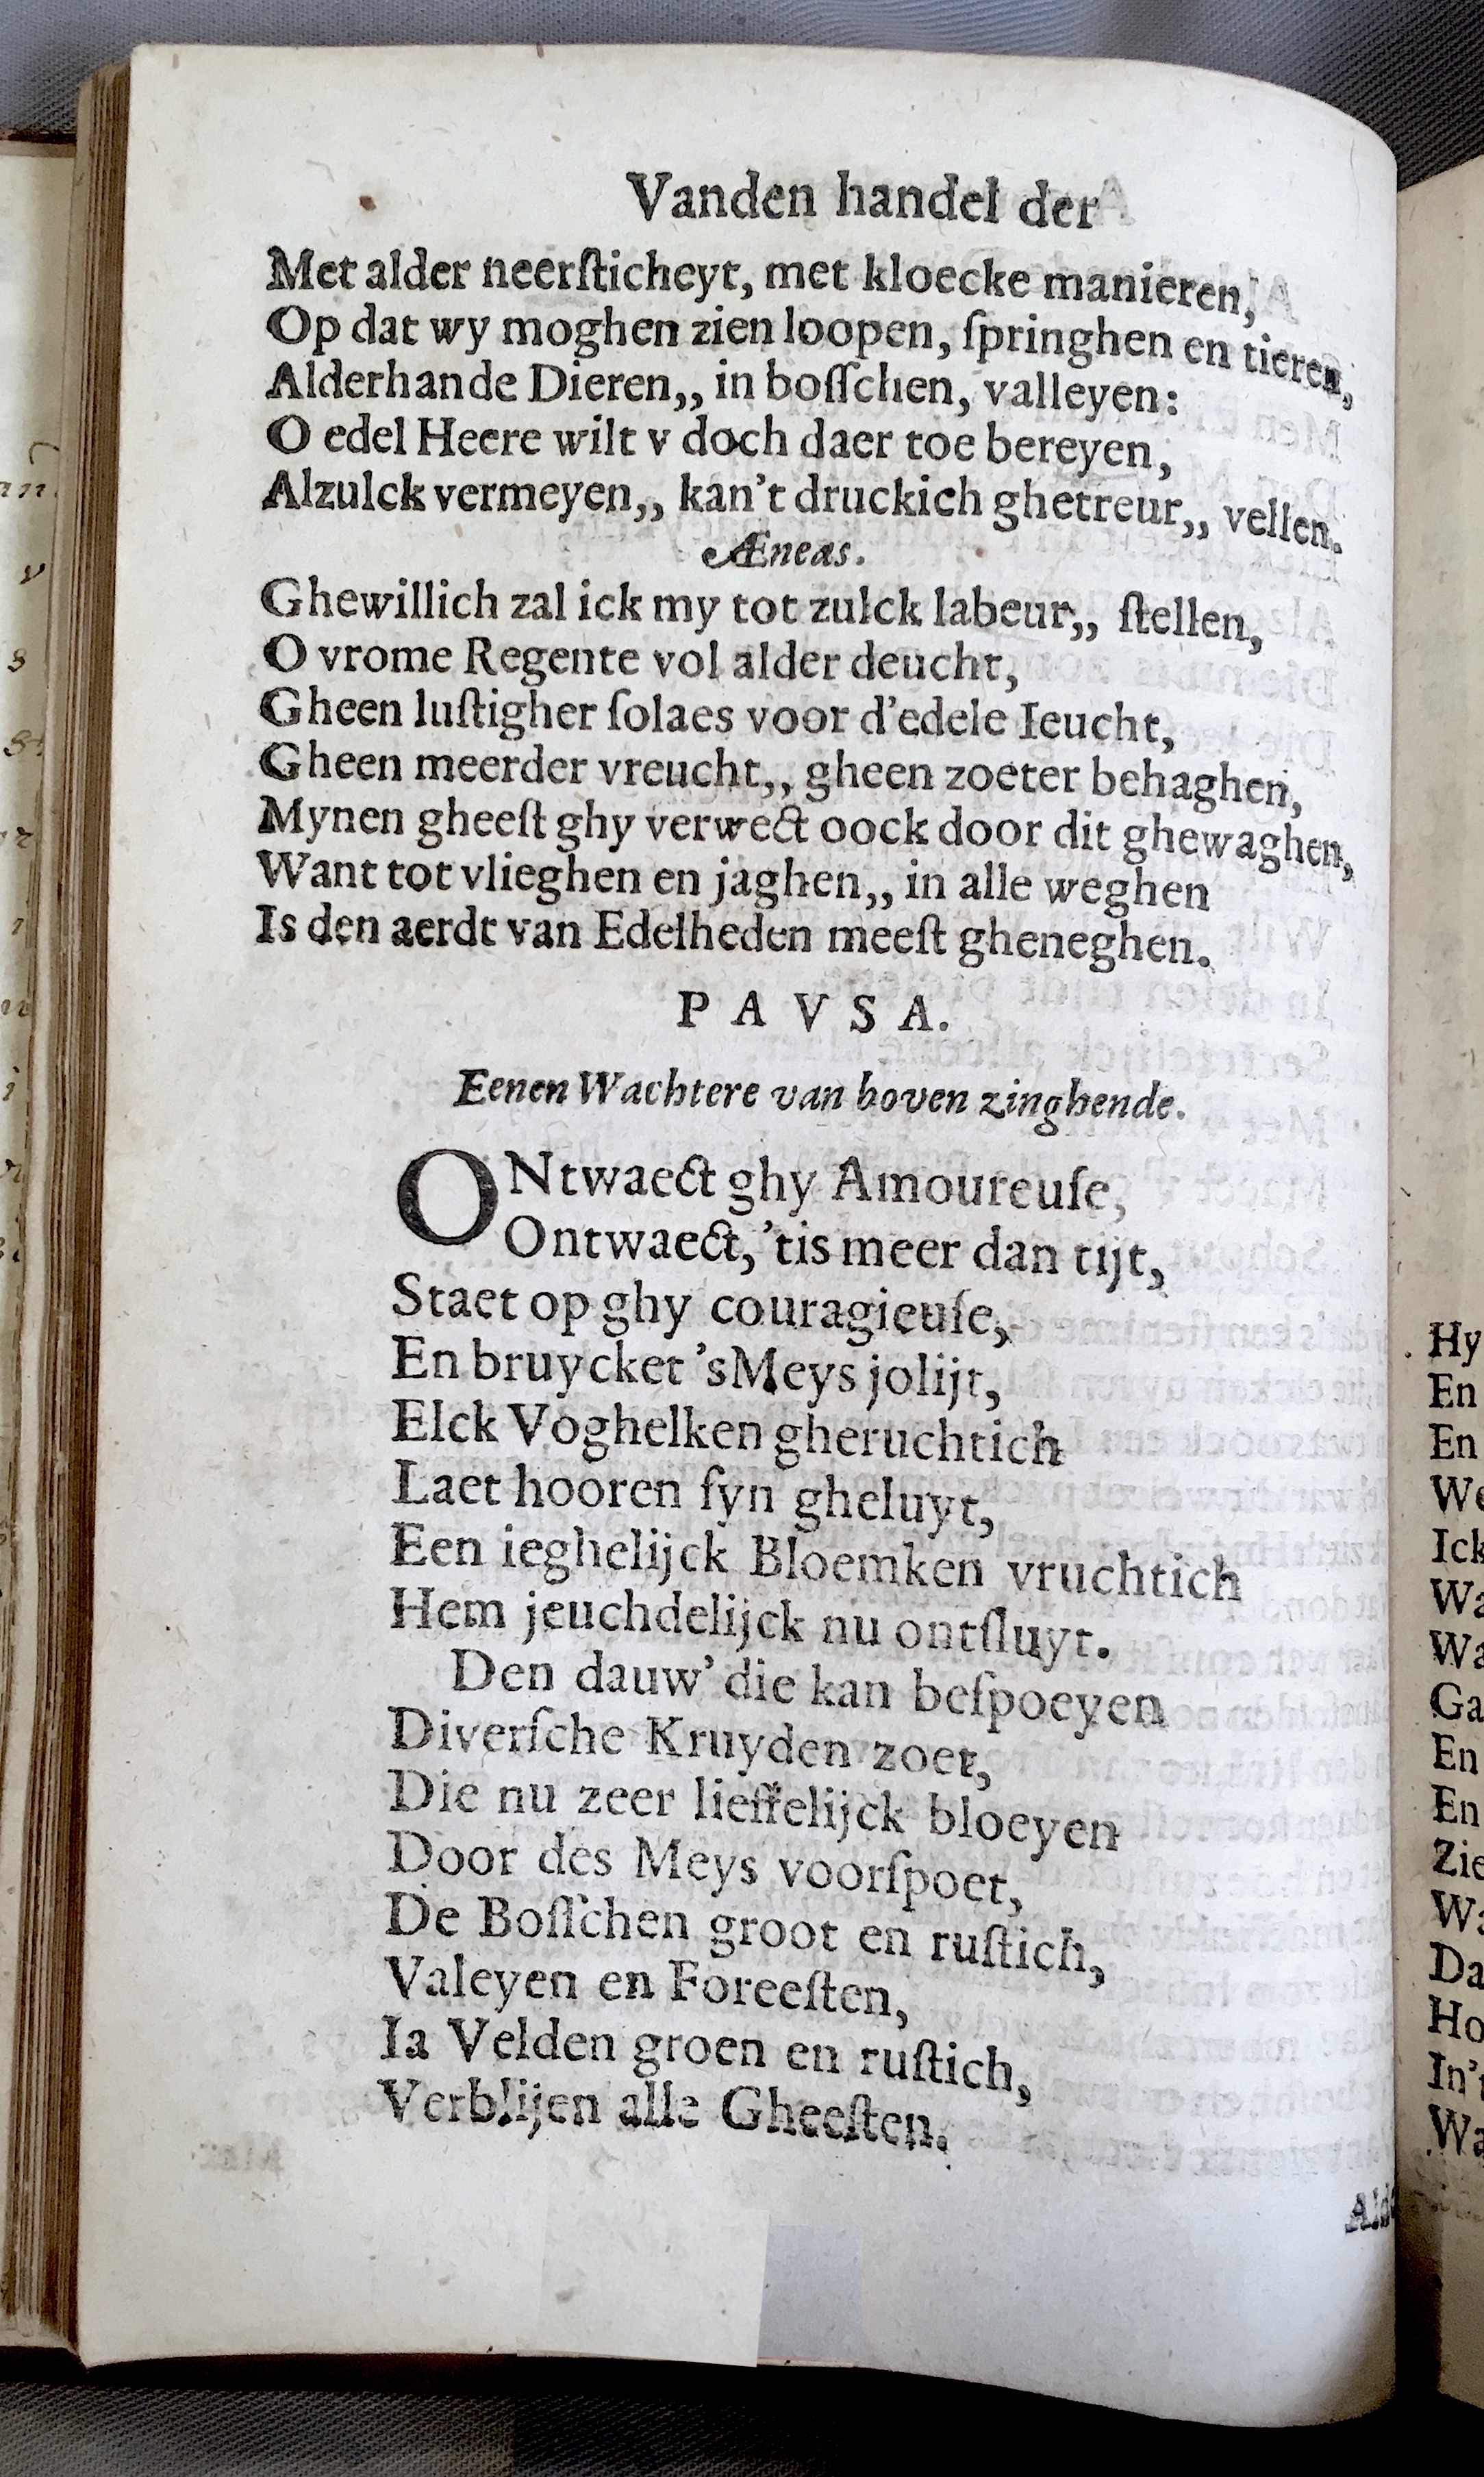 Vanden handel der
Met alder neerſticheyt, met kloecke manieren,
Op dat wy moghen zien loopen, ſpringhen en tieren,
Alderhande Dieren,, in boſſchen, valleyen:
O edel Heere wilt v doch daer toe bereyen,
Alzulck vermeyen,, kan't druckich ghetreur,, vellen.
Æneas.
Ghewillich zal ick my tot zulck labeur,, ſtellen,
O vrome Regente vol alder deucht,
Gheen luſtigher ſolaes voor d'edele Ieucht,
Gheen meerder vreucht,, gheen zoeter behaghen,
Mynen gheeſt ghy verwect oock door dit ghewaghen,
Want tot vlieghen en jaghen,, in alle weghen
Is den aerdt van Edelheden meeſt gheneghen.
PAVSA.
Eenen Wachtere van boven zinghende.
ONtwaect ghy Amoureuſe,
Ontwaect, 'tis meer dan tijt,
Staet op ghy couragieuſe,
En bruycket 'sMeys jolijt,
Elck Voghelken gheruchtich
Laet hooren ſyn gheluyt,
Een ieghelijck Bloemken vruchtich
Hem jeuchdelijck nu ontſluyt.
Den dauw' die kan beſpoeyen
Diverſche Kruyden zoet,
Die nu zeer lieffelijck bloeyen
Door des Meys voorſpoet,
De Boſſchen groot en ruſtich,
Valeyen en Foreeſten,
Ia Velden groen en ruſtich,
Verblijen alle Gheeſten.
Hy
En
En
We
Ick
Wa
Wa
Ga
En
En
Zie
Wa
Da
Ho
In't
Wa